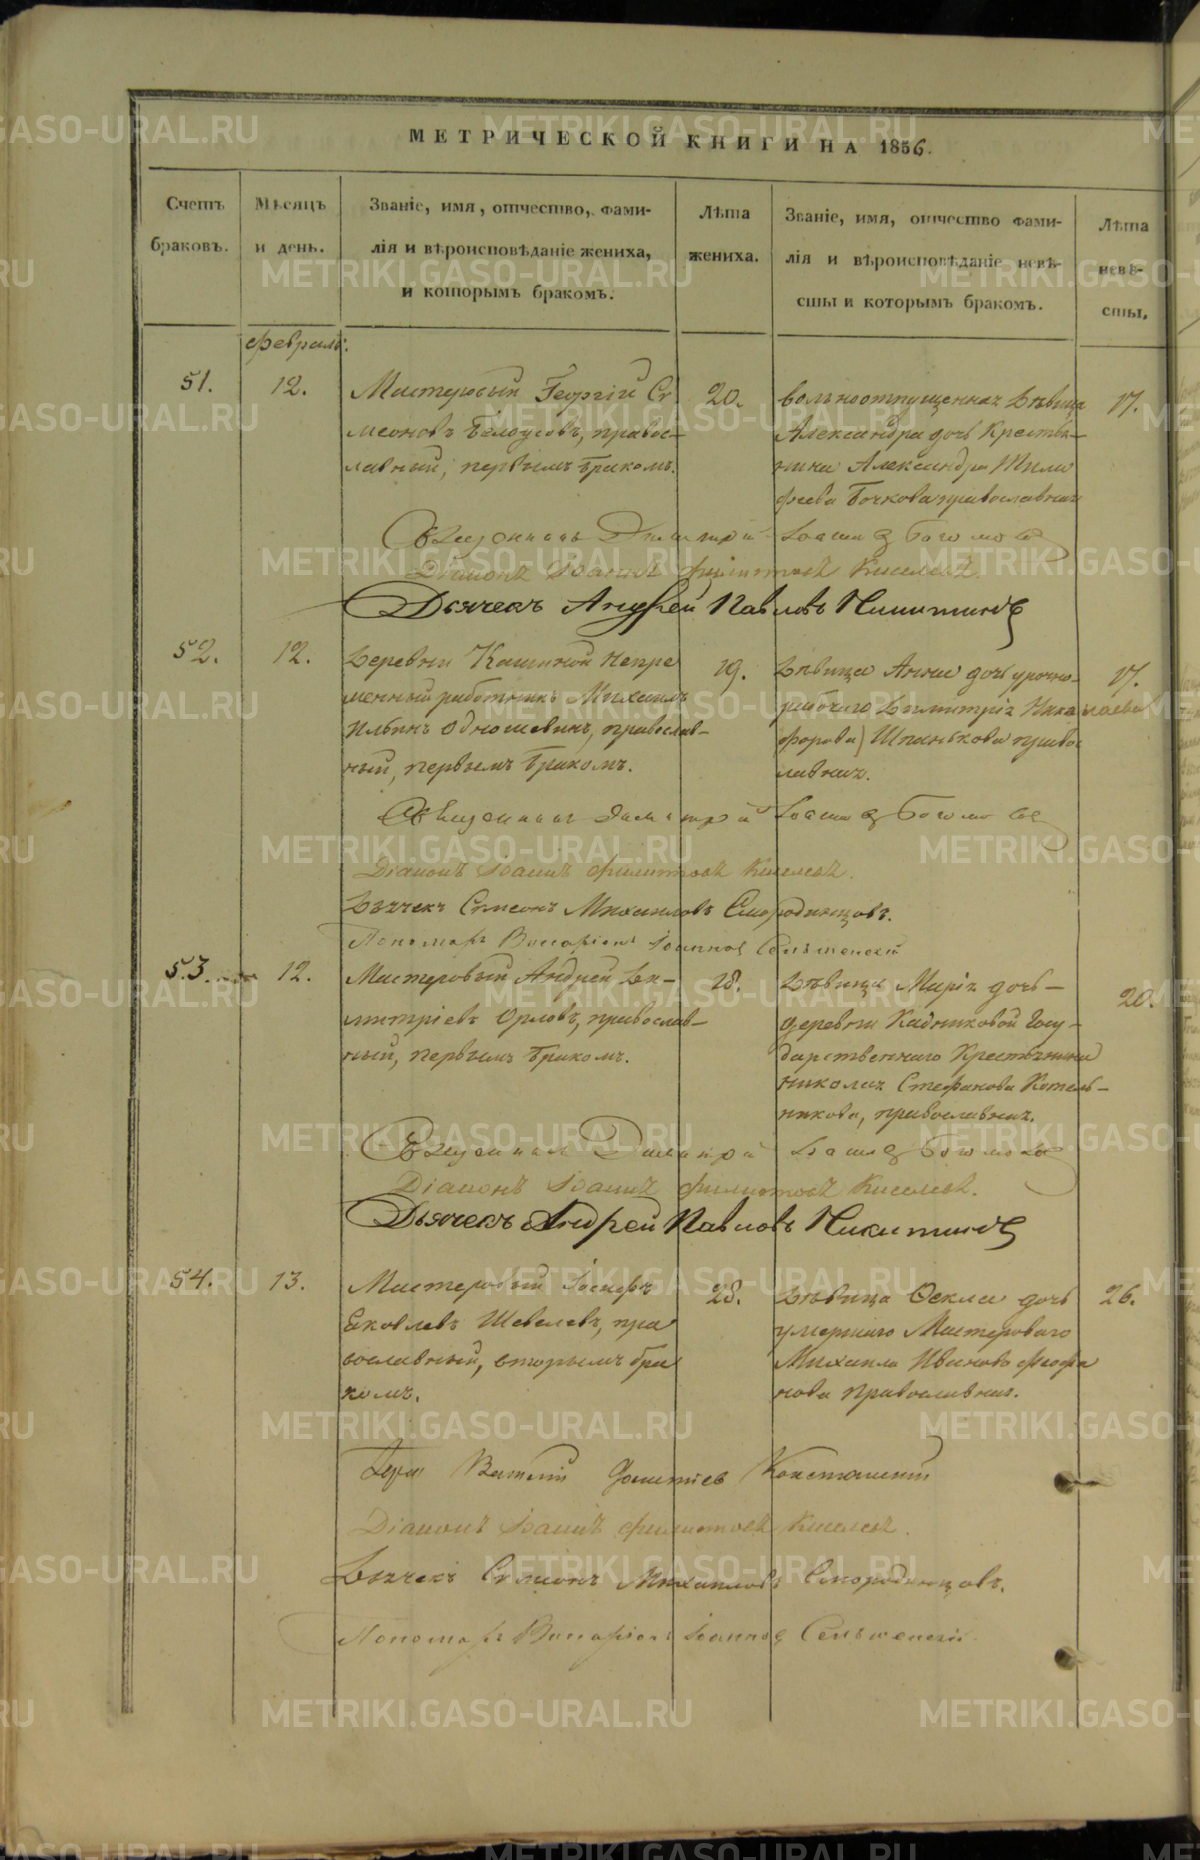 МЕТРИЧЕСКОЙ КНИГИ НА 1856.
Счетъ браковъ.
Мѣсяцъ и день.
Званіе, имя, отчество, фами-
лія и вѣроисповѣданіе жениха,
и которымъ бракомъ.
Лѣта жениха.
Званіе, имя, отчество фами-
лія и вѣроисповѣданіе невѣ-
сты и которымъ бракомъ.
Лѣта невѣ-
сты.
февраль.
51.
12.
Мастеровый Георгій Си
меоновъ Белоусовъ, правос-
лавный, первымъ бракомъ.
20.
вольноотпущенная Дѣвица
Александра дочь Крестья-
нина Александра Тимо
феева Бочкова православная
17.
Священникъ Димитрій
Діаконъ Іоаннъ Филиповъ Киселевъ.
Дьячекъ Андрей Павловъ Никитинъ
52.
12.
Деревни Кашиной непре
менный работникъ Михаилъ
Ильинъ Одношевинъ, православ-
ный, первымъ бракомъ.
19.
Дѣвица Анна дочь урочно-
рабочаго Димитрія Ника
форова) Шпанькова право
славная.
17.
Священникъ Димитрій
Діаконъ Іоаннъ Филиповъ Киселевъ.
Дьячекъ Симеонъ Михаиловъ Смородинцовъ.
Пономарь Виссаріонъ Іоанновъ
53.
12.
Мастеровый Андрей Ди-
митріевъ Орловъ, православ-
ный, первымъ бракомъ.
18.
Дѣвица Марія дочь-
деревни Кадниковой Госу-
дарственнаго Крестьянина
Николая Стефанова Котель-
никова, православная.
20.
Священникъ Димитрій
Діаконъ Іоаннъ Филиповъ Киселевъ.
Дьячекъ Андрей Павловъ Никитинъ
54.
13.
Мастеровый Іосифъ
Яковлевъ Шевелевъ, пра
вославный, вторымъ бра
комъ.
28.
Дѣвица Фекла дочь
умершаго Мастероваго
Михаила Иванова Феофа
нова православная.
26.
Діаконъ Іоаннъ Филиповъ Киселевъ.
Дьячекъ Симеонъ Михаиловъ Смородинцовъ.
Пономарь Виссаріонъ Іоанновъ
METRIKI.GASO-URAL.RU